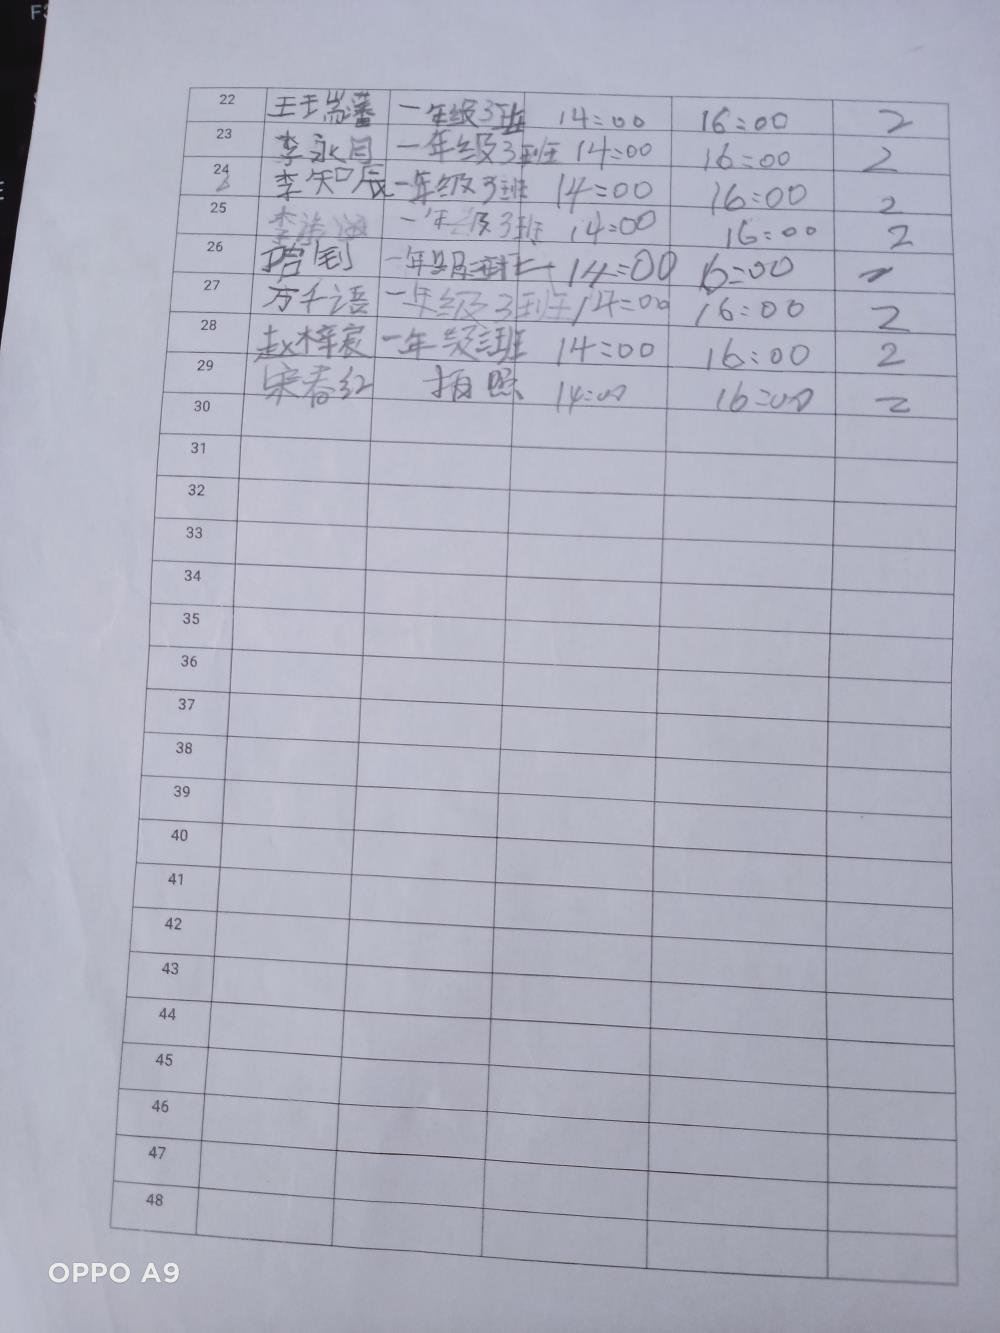 22 一年级3班 14:00 16:00 2
23 李永月 一年级3班 14:00 16:00 2
24 李知辰 一年级3班 14:00 16:00 2
25 李 一年级3班 14:00 16:00 2
26 一年级 14:00 16:00
27 方千语 一年级3班 14:00 16:00 2
28 赵梓宸 一年级三班 14:00 16:00 2
29 宋春红 拍照 14:00 16:00 2
30
31
32
33
34
35
36
37
38
39
40
41
42
43
44
45
46
47
48
OPPO A9